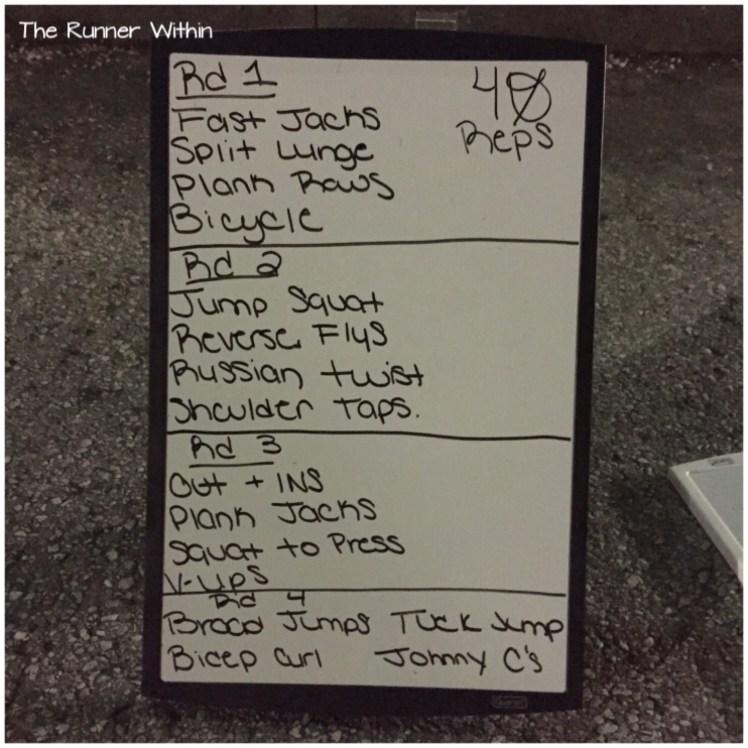 The Runner Within
Rd 1
40
Reps
Fast Jacks
Split Lunge
Plank Rows
Bicycle
Rd 2
Jump Squat
Reverse Flys
Russian twist
Shoulder Taps.
Rd 3
Out + INS
Plank Jacks
Squat to Press
V-UPS
Rd 4
Broad Jumps Tuck Jump
Bicep Curl Johnny C's